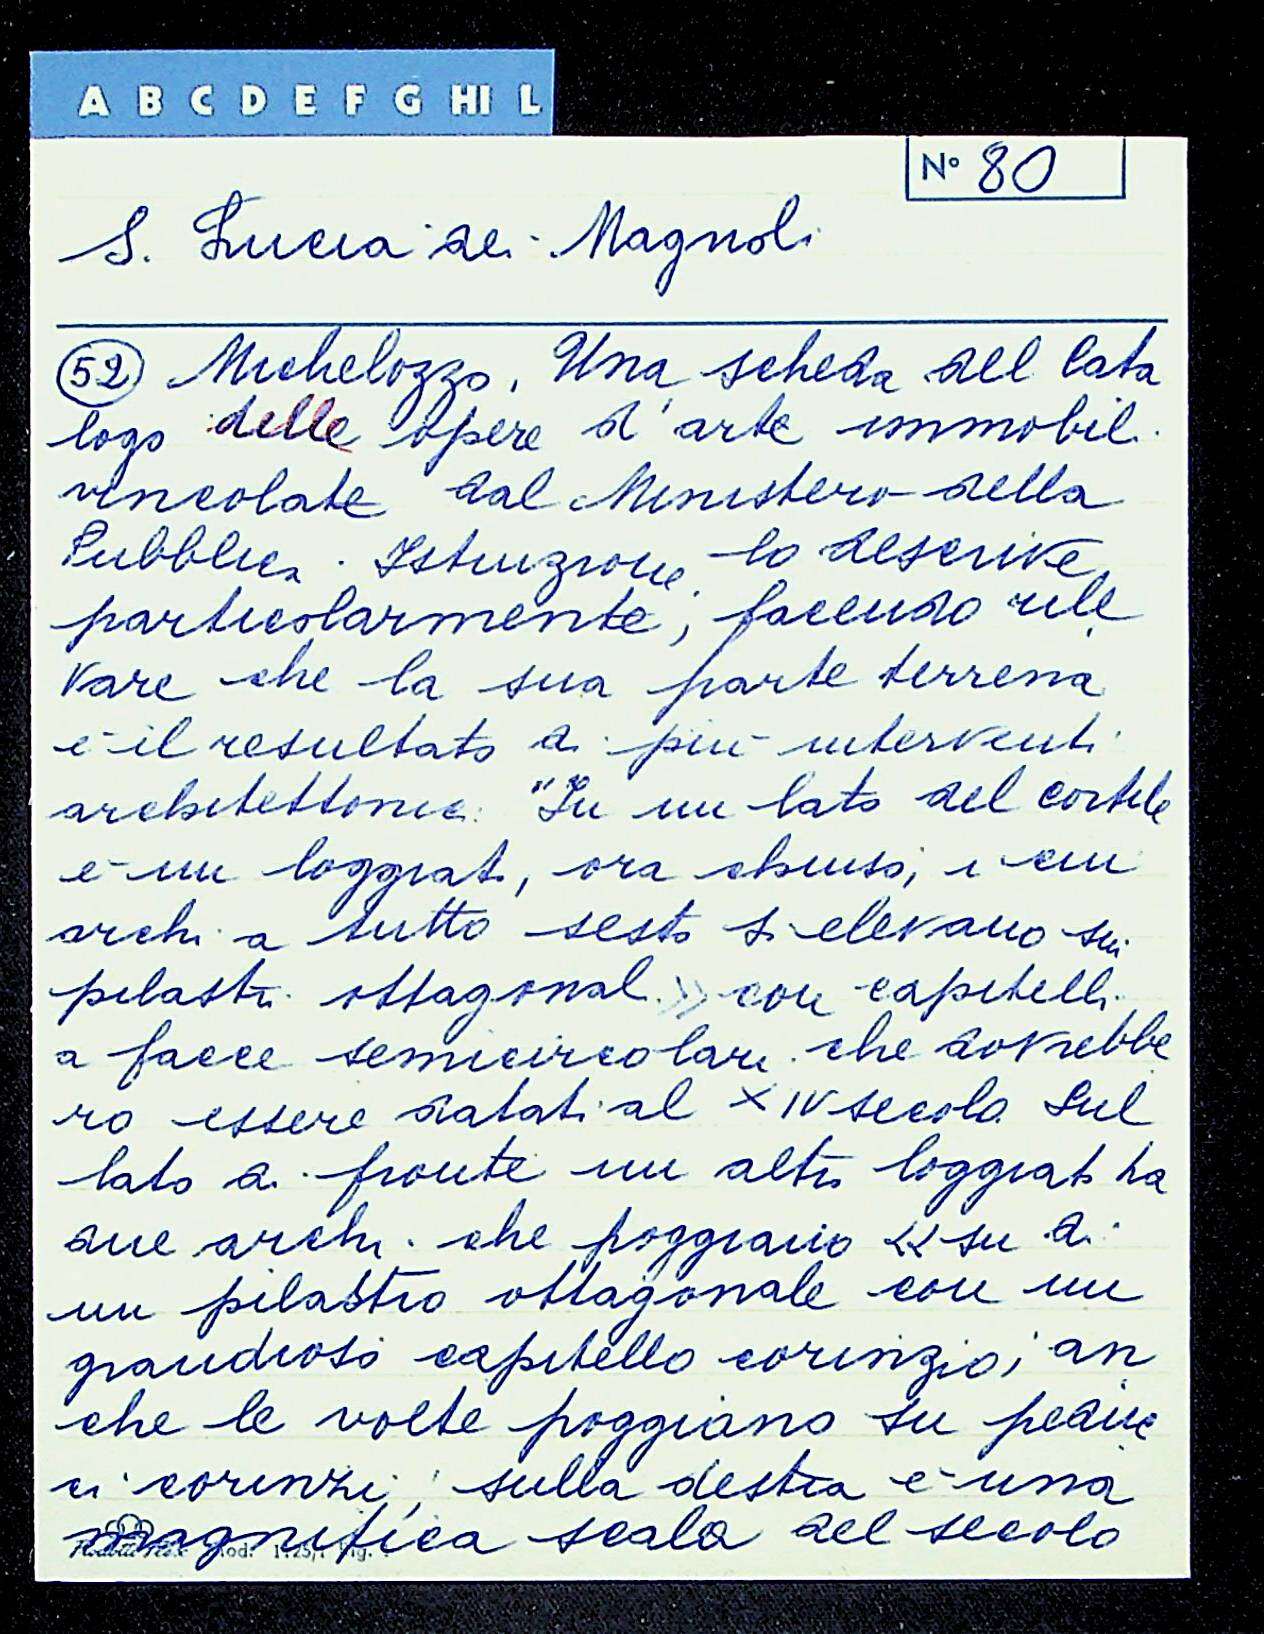 A B C D E F G HI L
N° 80
S. Lucia dei Magnoli
52 Michelozzo. Una scheda del Cata
logo delle opere d'arte immobili
vincolate dal Ministero della
Pubblica Istruzione lo descrive
particolarmente, facendo rile
vare che la sua parte terrena
è il resultato di più interventi
architettonici: "In un lato del cortile
è un loggiato, ora chiuso, i cui
archi a tutto sesto si elevano su
pilastri ottagonali» con capitelli
a facce semicircolari che dovrebbe
ro essere datati al XIV secolo. Sul
lato di fronte un altro loggiato ha
due archi che poggiano «su di
un pilastro ottagonale con un
grandioso capitello corinzio; an
che le volte poggiano su peduc
ci corinzi; sulla destra è una
magnifica scala del secolo